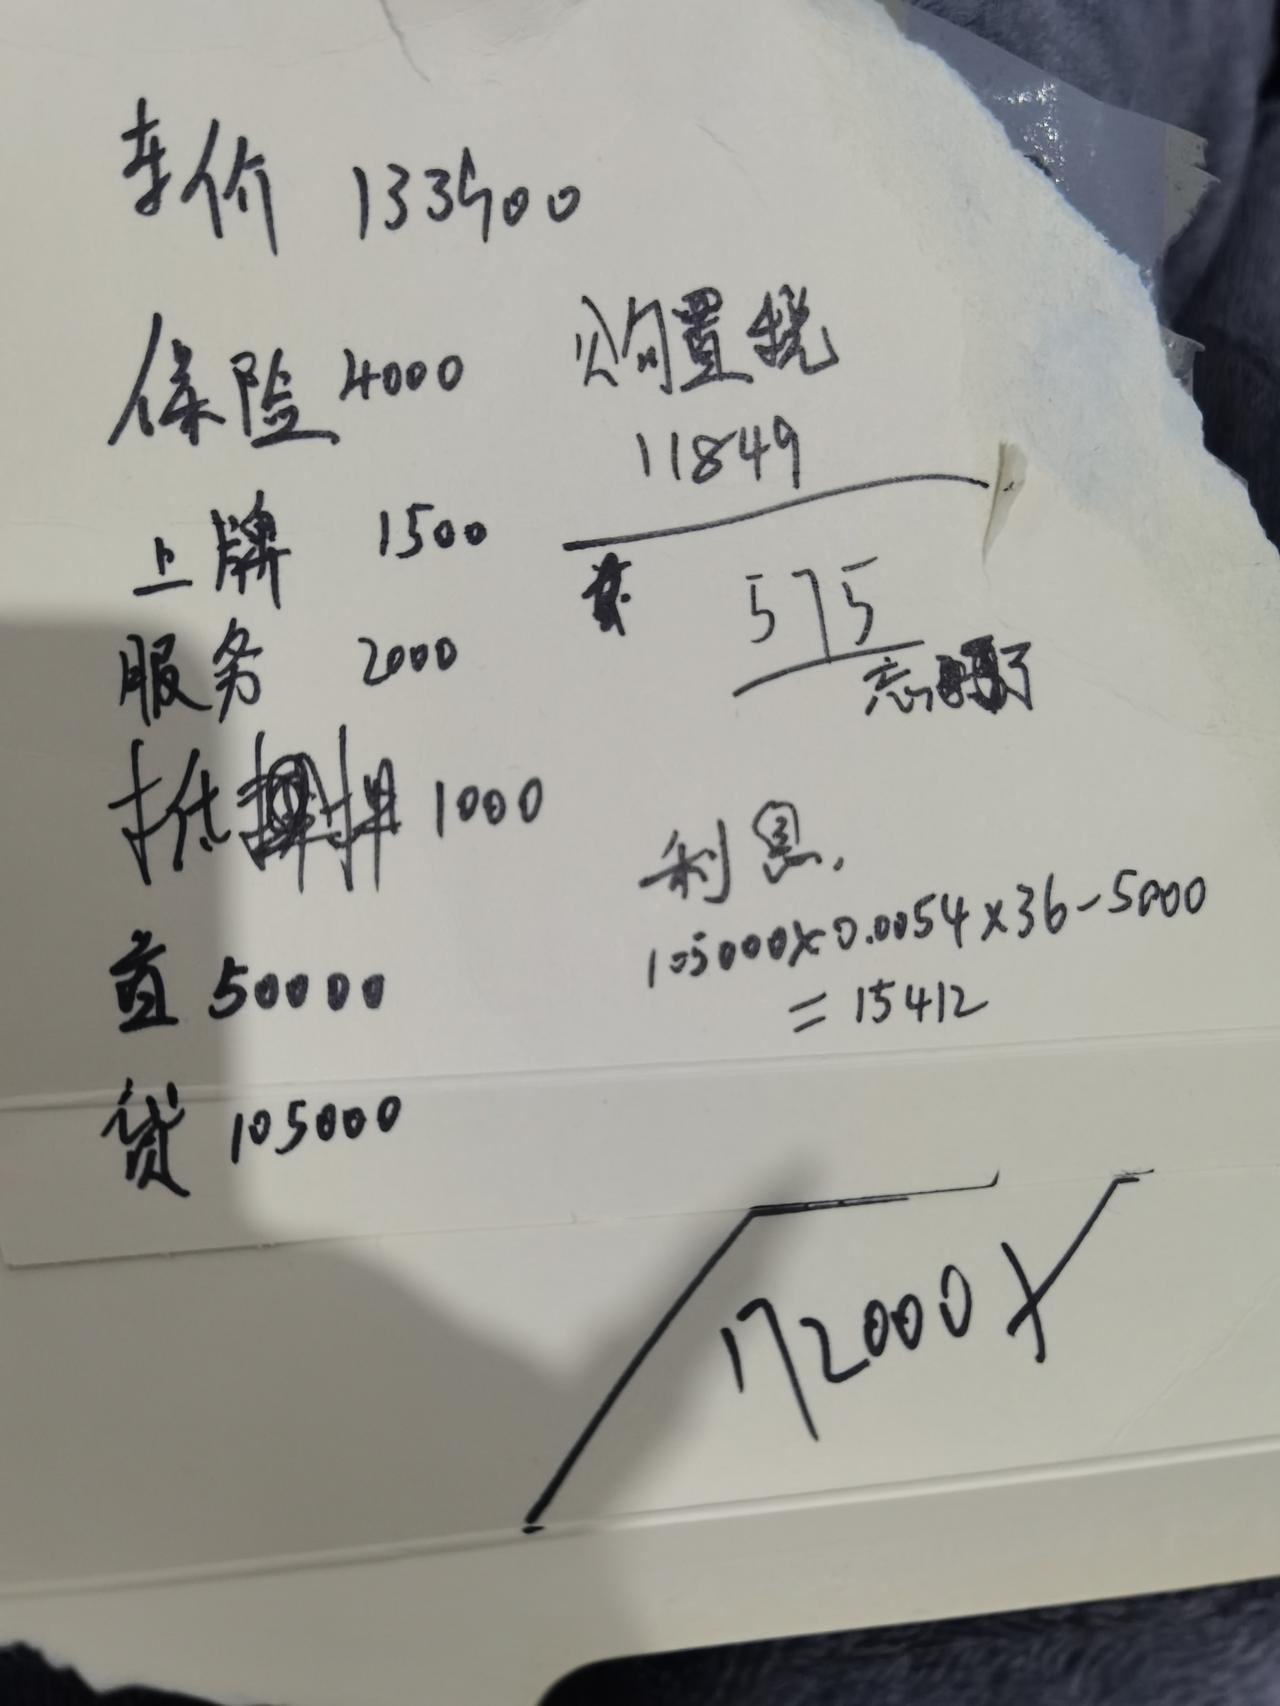 车价 133900
保险 4000
上牌 1500
服务 2000
抵押 1000
首 50000
贷 105000
购置税
11849
575
忘了
利息.
105000×0.0054×36-5000
=15412
172000